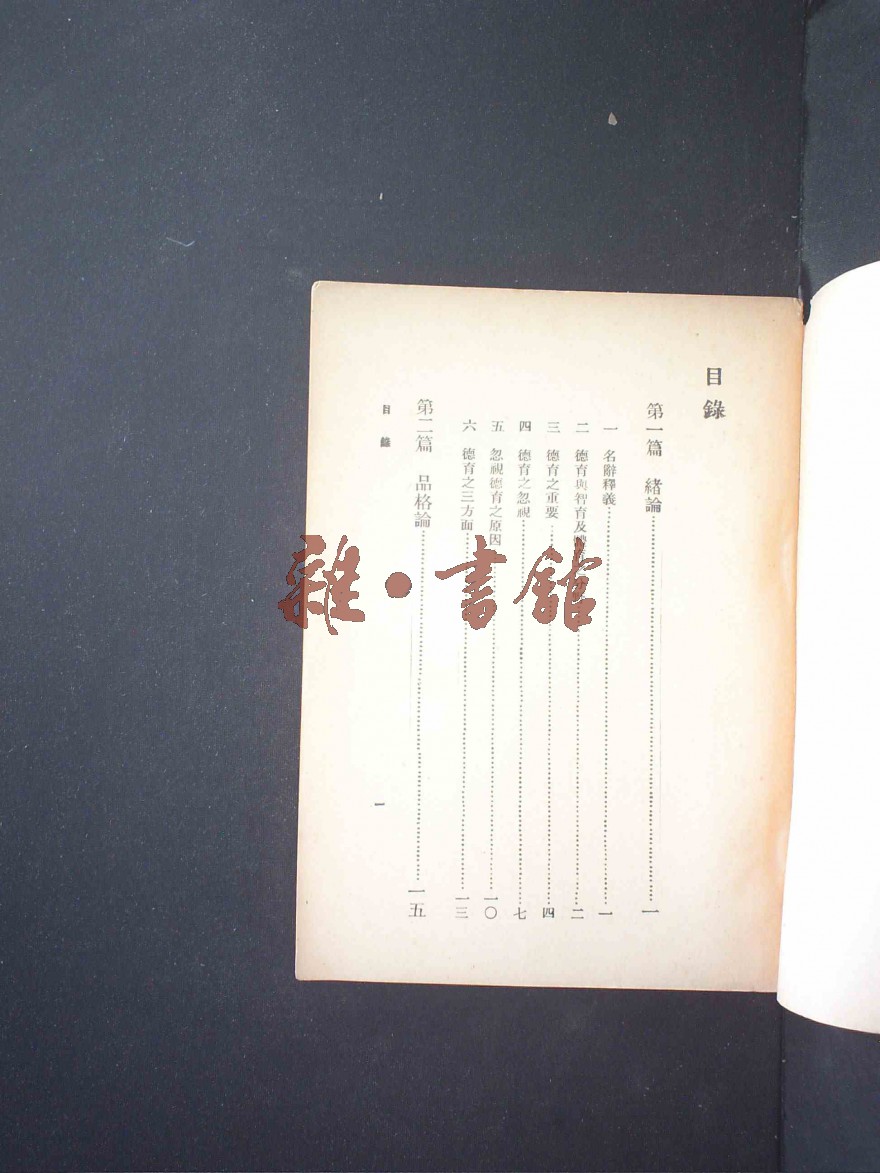 目錄
第一篇 緒論……一
一 名辭釋義……一
二 德育與智育及……二
三 德育之重要……四
四 德育之忽視……七
五 忽視德育之原因……一〇
六 德育之三方面……一三
第二篇 品格論……一五
目錄
一
雜·書館